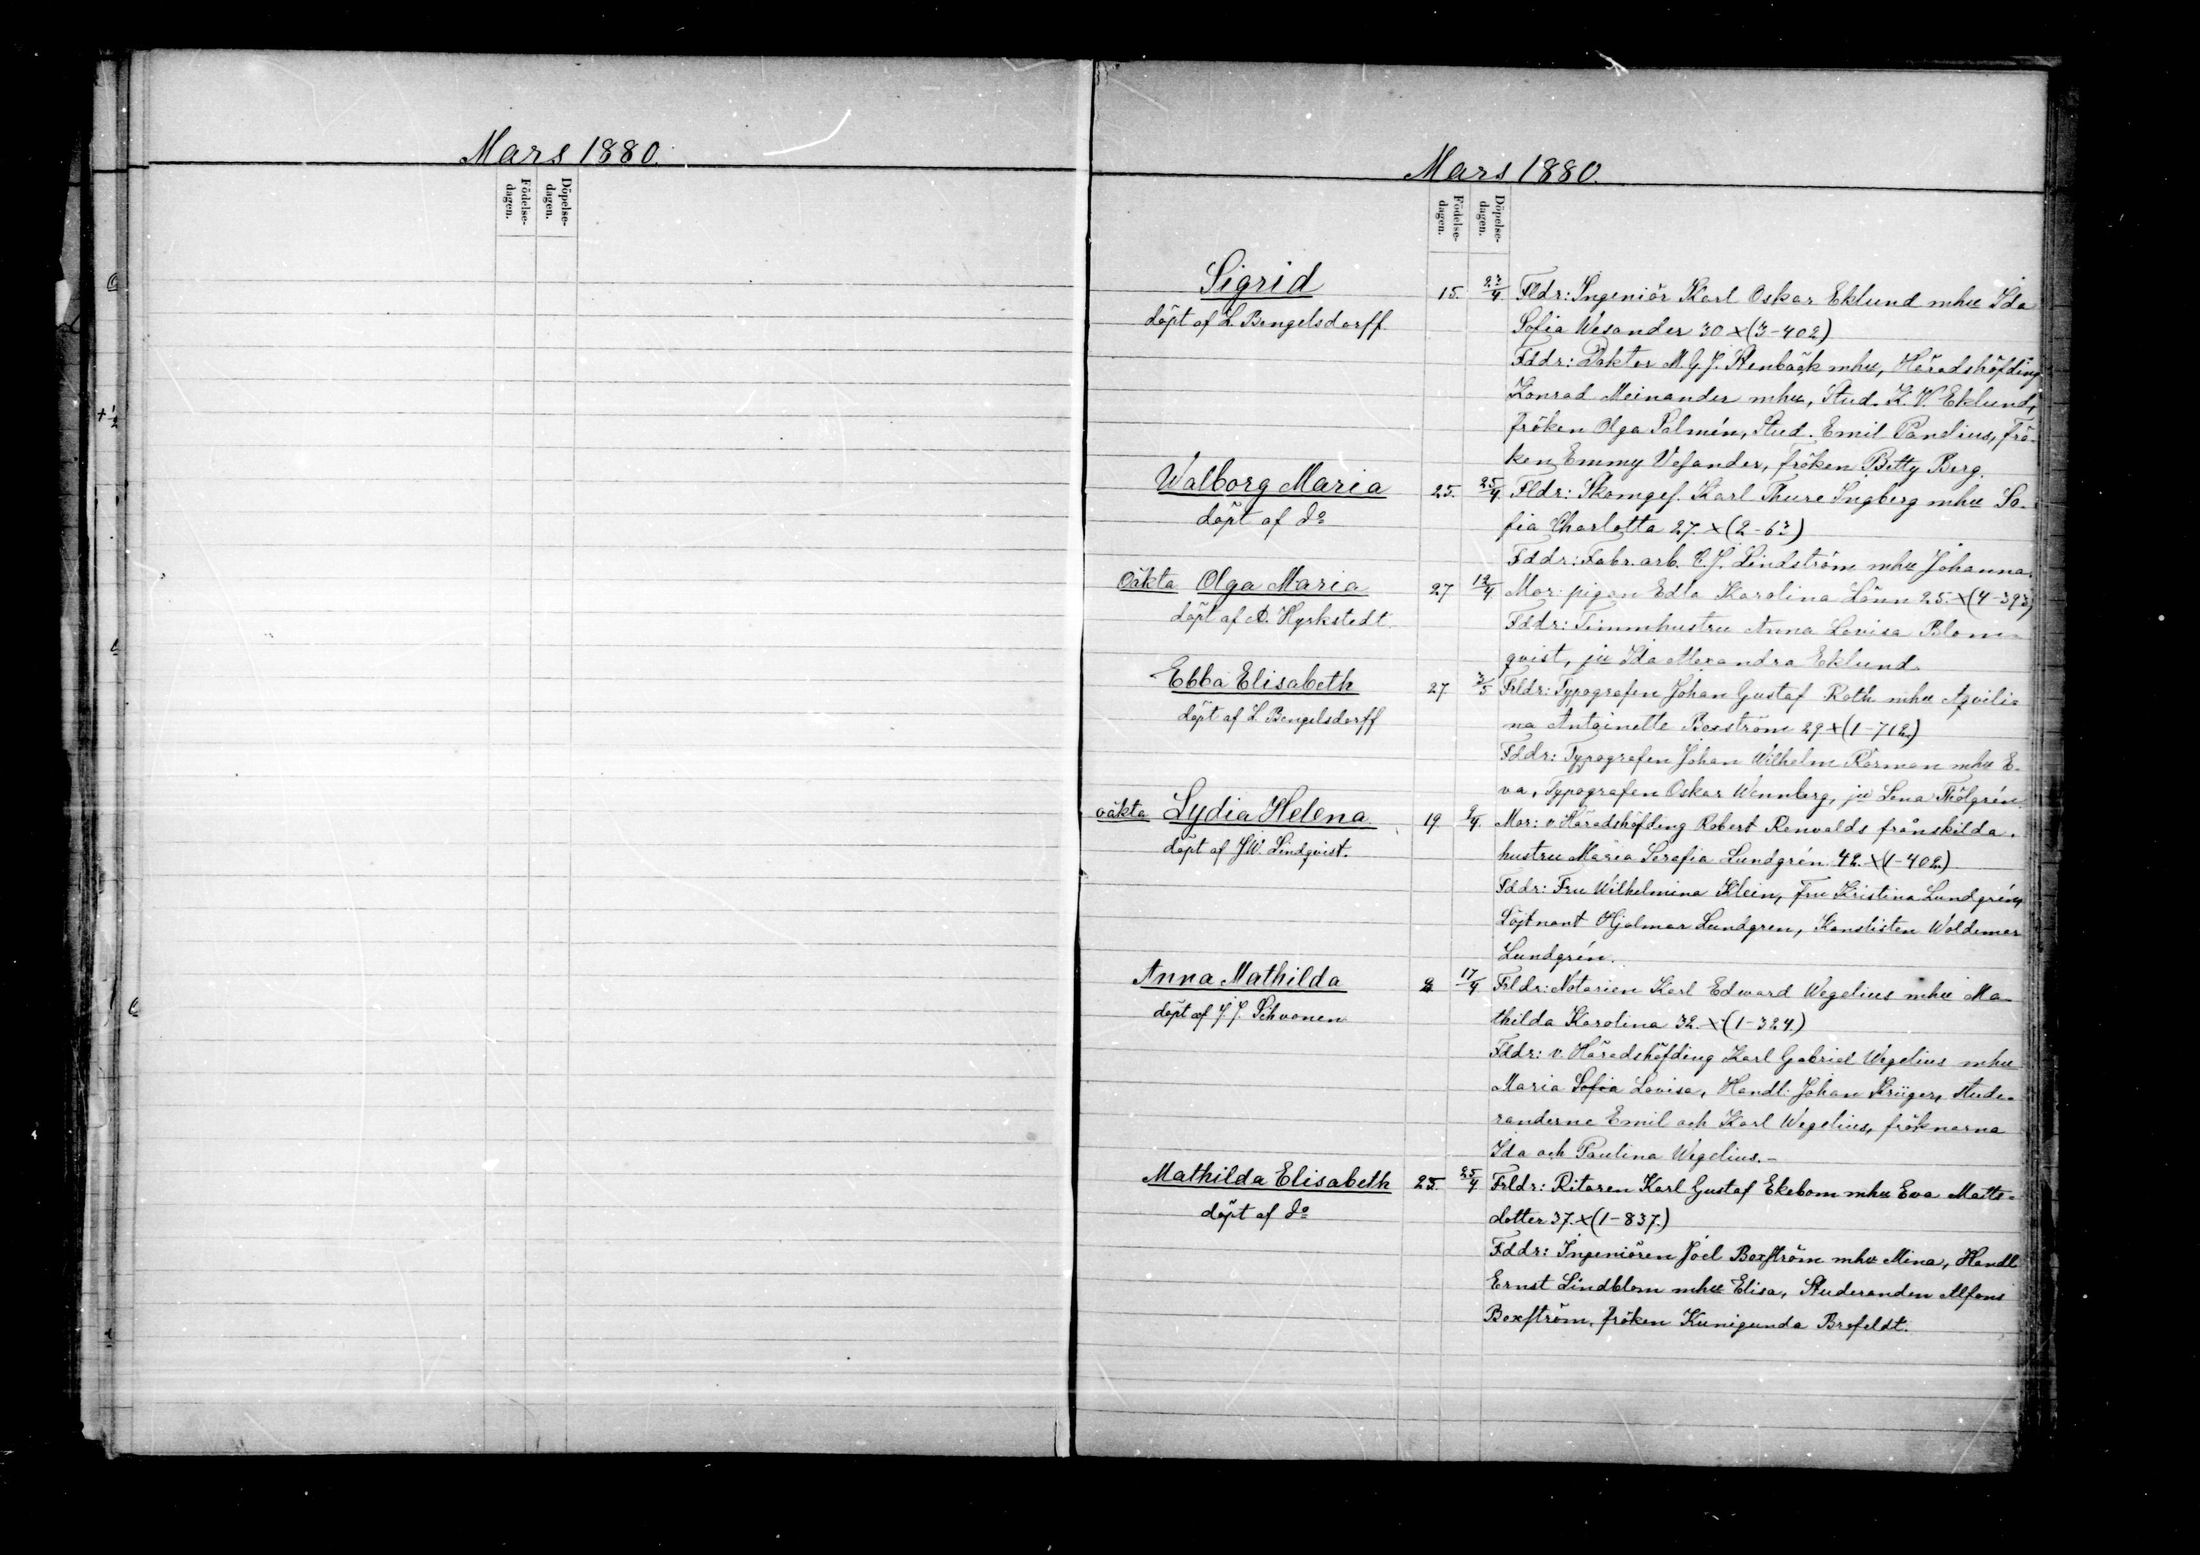 Mars 1880.
Födelse-
dagen.
Döpelse-
dagen.
Mars 1880.
Födelse-
dagen.
Döpelse-
dagen.
Sigrid 15. 23/4 Fldr: Ingeniör Karl Oskar Eklund mhu Ida
döpt af L. Bengelsdorff. Sofia Wesander 30 x (3-402)
Fddr: Doktor M. G. J. Stenbäck mhu, Häradshöfding
Konrad Meinander mhu, Stud. K. V. Eklund,
fröken Olga Palmén, Stud. Emil Pandius, frö-
ken Emmy Vesander, fröken Betty Berg.
Walborg Maria 25. 25/4 Fldr: Skomges. Karl Thure Ingberg mhu So-
döpt af do fia Charlotta 27. x (2-63)
Fddr: Fabr. arb. C. J. Lindström mhu Johanna.
Oäkta Olga Maria 27 12/4 Mor: pigan Edla Karolina Lönn 25. x (4-393)
döpt af A. Hyrkstedt. Fddr: Timmhustru Anna Lovisa Blom-
qvist, ju Ida Alexandra Eklund.
Ebba Elisabeth 27 3/5 Frldr: Typografen Johan Gustaf Roth mhu Aqvili-
döpt af L Bengelsdorff na Antoinette Boxström 29 x (1-712)
Fddr: Typografen Johan Wilhelm Rörman mhu E-
va, Typografen Oskar Wennberg, ju Lena Thölgrén
oäkta Lydia Helena 19 9/4. Mor: v. Häradshöfding Robert Renvalds frånskilda
döpt af J W. Lindqvist. hustru Maria Serafia Lundgrén 42. x (1-402)
Fddr: Fru Wilhelmina Klein, fru Kristina Lundgrén,
Löjtnant Hjalmar Lundgren, Kanslisten Woldemar
Lundgrén.
Anna Mathilda 8 17/4 Frldr: Notarien Karl Edward Wegelius mhu Ma-
döpt af J. J. Schvonen thilda Karolina 32. x (1-324)
Fddr: v. Häradshöfding Karl Gabriel Wegelius mhu
Maria Sofia Lovisa, Handl: Johan Krüger, Stude-
randerne Emil och Karl Wegelius, fröknarna
Ida och Paulina Wegelius.-
Mathilda Elisabeth 25. 25/4 Frldr: Ritaren Karl Gustaf Ekebom mhu Eva Matts-
döpt af do dotter 37. x (1-837.)
Fddr: Ingeniören Joel Boxström mhu Mina, Handl
Ernst Lindblom mhu Elisa, Studeranden Alfons
Boxström, fröken Kunigunda Brofeldt.